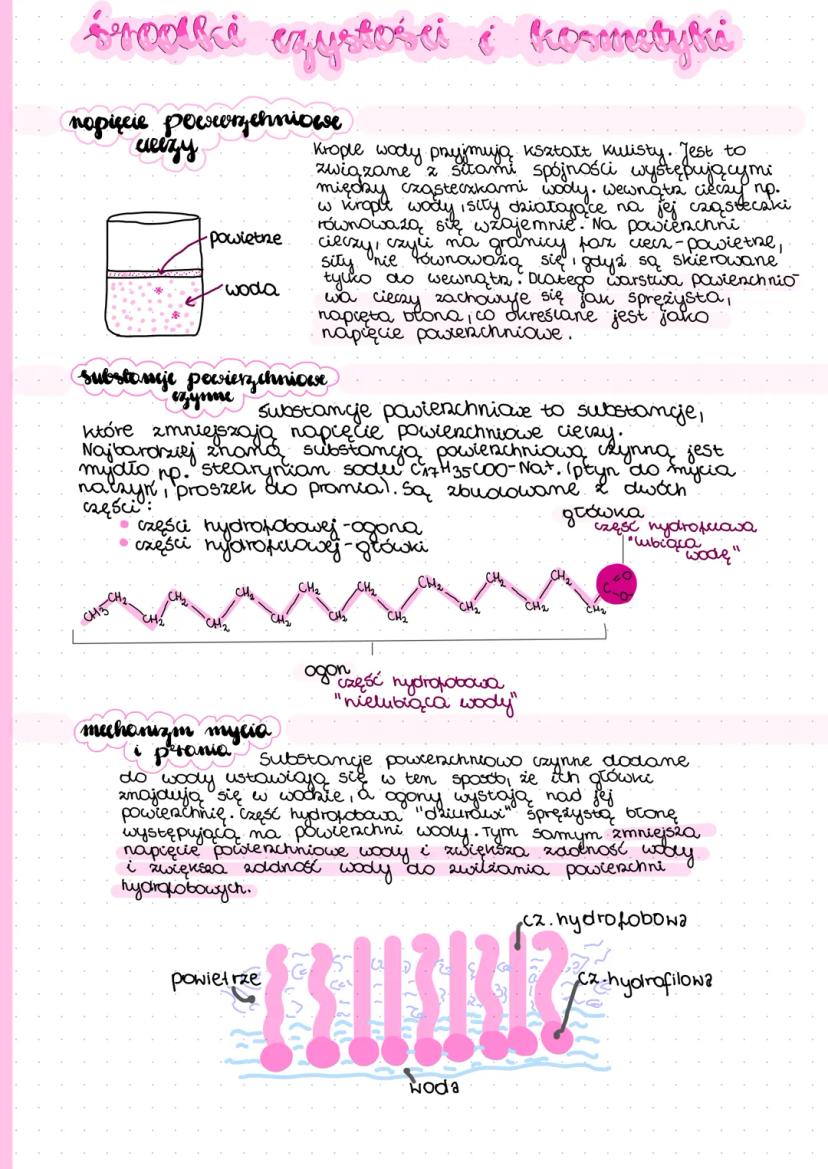 środki czystości i kosmetyki
napięcie powierzchniowe
cieczy
Krople wody przyjmują kształt kulisty. Jest to
związane z siłami spójności występującymi
między cząsteczkami wody. Wewnątrz cieczy np.
w kropli wody, siły działające na jej cząsteczki
równoważą się wzajemnie. Na powierzchni
cieczy, czyli na granicy faz ciecz-powietrze,
siły nie równoważą się, gdyż są skierowane
tylko do wewnątrz. Dlatego warstwa powierzchnio-
wa cieczy zachowuje się jak sprężysta,
napięta błona, co określane jest jako
napięcie powierzchniowe.
powietrze
woda
substancje powierzchniowe
czynne
Substancje powierzchniowe to substancje,
które zmniejszają napięcie powierzchniowe cieczy.
Najbardziej znaną substancją powierzchniową czynną jest
mydło np. stearynian sodu C17H35COO-Na+. (płyn do mycia
naczyń, proszek do prania). Są zbudowane z dwóch
części:
• części hydrofobowej-ogona
• części hydrofilowej-główki
główka
część hydrofilowa
"lubiąca
wodę"
CH3 CH2 CH2 CH2 CH2 CH2 CH2 CH2 CH2 CH2 CH2 CH2 CH2 CH2 CH2 CH2 CH2 C O O-
ogon
część hydrofobowa
"nielubiąca wody"
mechanizm mycia
i prania
Substancje powierzchniowo czynne dodane
do wody ustawiają się w ten sposób, że ich główki
znajdują się w wodzie, a ogony wystają nad jej
powierzchnię. Część hydrofobowa "dziurawi" sprężystą błonę
występującą na powierzchni wody. Tym samym zmniejsza
napięcie powierzchniowe wody i zwiększa zdolność wody
i zwiększa zdolność wody do zwilżania powierzchni
hydrofobowych.
cz. hydrofobowa
powietrze
cz. hydrofilowa
woda